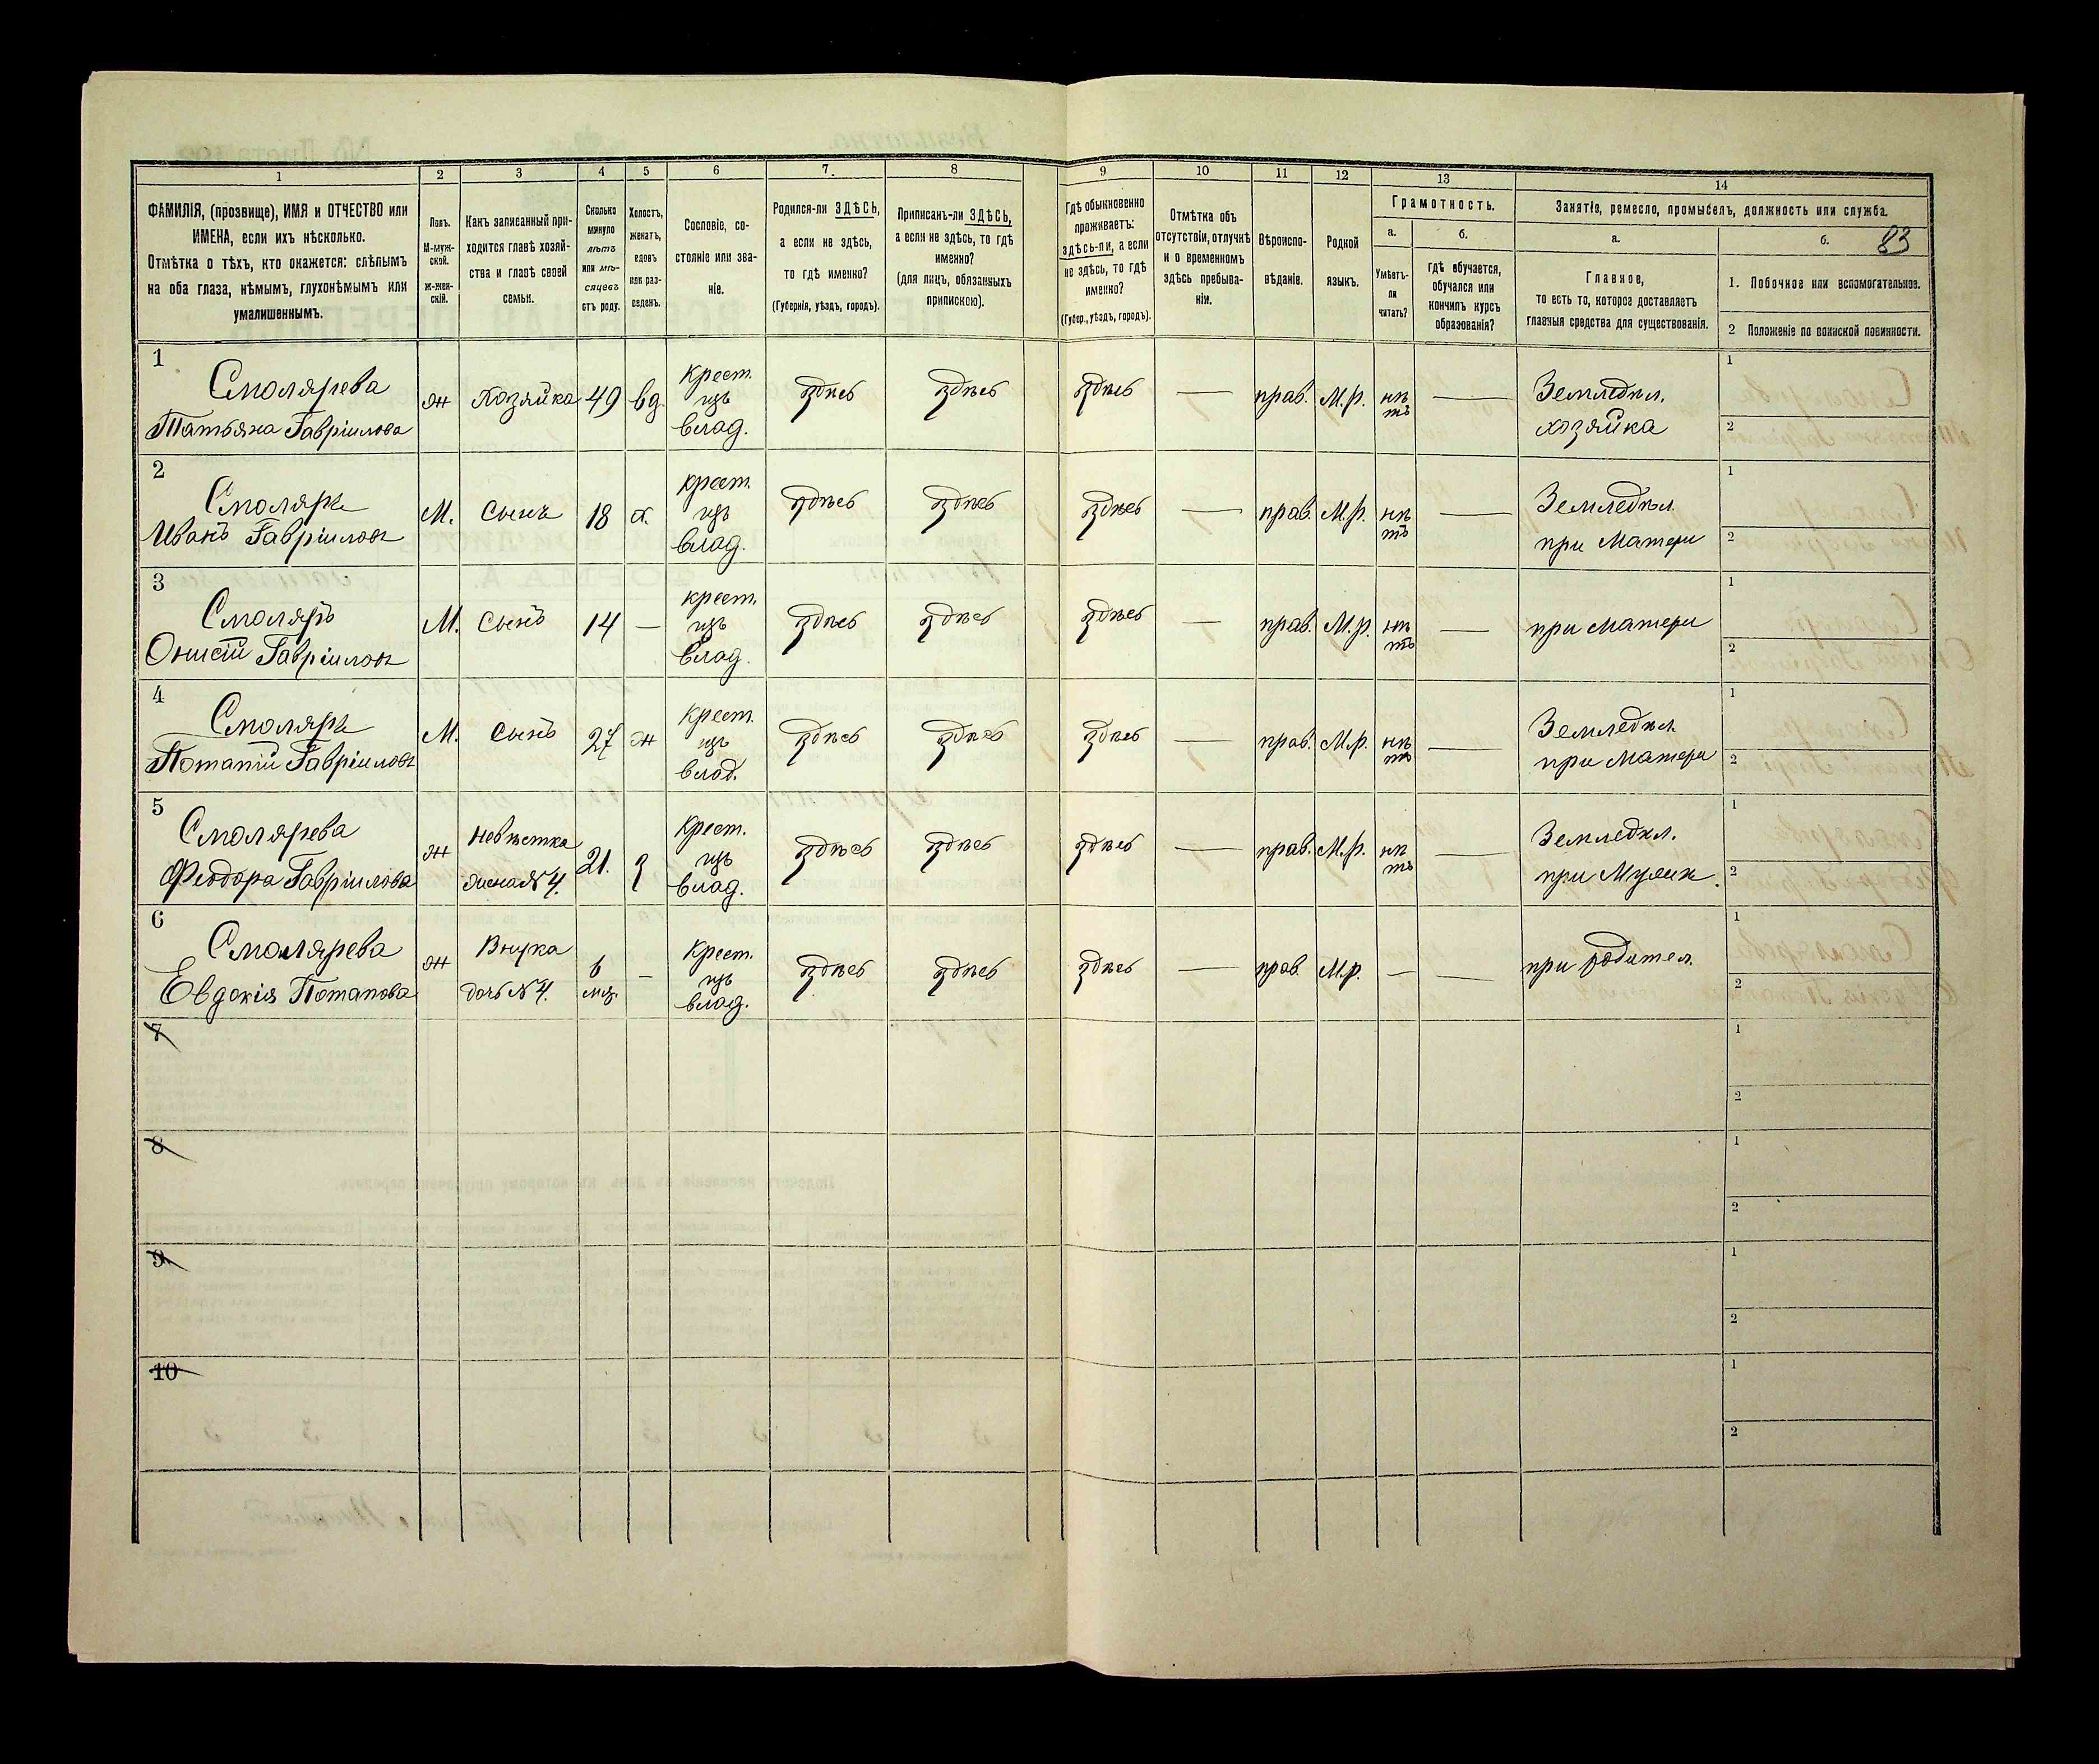 1 2 3 4 5 6 7. 8 9 10 11 12 13 14
ФАМИЛІЯ, (прозвище), ИМЯ и ОТЧЕСТВО или
ИМЕНА, если ихъ нѣсколько.
Отмѣтка о тѣхъ, кто окажется: слѣпымъ
на оба глаза, нѣмымъ, глухонѣмымъ или
умалишеннымъ.
Полъ.
М-муж-
ской.
Ж-жен-
скій.
Какъ записанный при-
ходится главѣ хозяй-
ства и главѣ своей
семьи.
Сколько
минуло
лѣтъ
или мѣ-
сяцевъ
отъ роду.
Холостъ,
женатъ,
вдовъ
или раз-
веденъ.
Сословіе, со-
стояніе или зва-
ніе.
Родился-ли ЗДѢСЬ,
а если не здѣсь,
то гдѣ именно?
(Губернія, уѣздъ, городъ).
Приписанъ-ли ЗДѢСЬ,
а если не здѣсь, то гдѣ
именно?
(для лицъ, обязанныхъ
припискою).
Гдѣ обыкновенно
проживаетъ:
здѣсь-ли, а если
не здѣсь, то гдѣ
именно?
(Губер., уѣздъ, городъ).
Отмѣтка объ
отсутствіи, отлучкѣ
и о временномъ
здѣсь пребыва-
ніи.
Вѣроиспо-
вѣданіе.
Родной
языкъ.
Грамотность.
а.
Умѣетъ-
ли
читать?
б.
гдѣ обучается,
обучался или
кончилъ курсъ
образованія?
Занятіе, ремесло, промыселъ, должность или служба.
а.
Главное,
то есть то, которое доставляетъ
главныя средства для существованія.
б.
83
1. Побочное или вспомогательное.
2 Положеніе по воинской повинности.
1
Смолярева
Татьяна Гавріилова
ж Хозяйка 49 вд.
Крест.
изъ
влад.
здѣсь здѣсь здѣсь — прав. М.р.
нѣ
тъ
—
Земледѣл.
хозяйка
1
2
2
Смоляръ
Иванъ Гавріиловъ
М. Сынъ 18 х.
крест.
изъ
влад.
здѣсь здѣсь здѣсь — прав. М.р.
нѣ
тъ
—
Земледѣл.
при Матери
1
2
3
Смоляръ
Онисій Гавріиловъ
М. Сынъ 14 —
крест.
изъ
влад.
здѣсь здѣсь здѣсь — прав. М.р.
нѣ
тъ
—
при матери
1
2
4
Смоляръ
Потапій Гавріиловъ
М. Сынъ 27 ж
Крест.
изъ
влад.
здѣсь здѣсь здѣсь — прав. М.р.
нѣ
тъ
—
Земледѣл.
при матери
1
2
5
Смолярева
Феодора Гавріилова
ж
Невѣстка
жена № 4.
21. з
Крест.
изъ
влад.
здѣсь здѣсь здѣсь — прав. М.р.
нѣ
тъ
—
Земледѣл.
при Мужѣ.
1
2
6
Смолярева
Евдокія Потапова
ж
Внучка
дочь № 4.
6
мѣс.
—
Крест.
изъ
влад.
здѣсь здѣсь здѣсь — прав. М.р. — —
при родител.
1
2
7
1
2
8
1
2
9
1
2
10
1
2